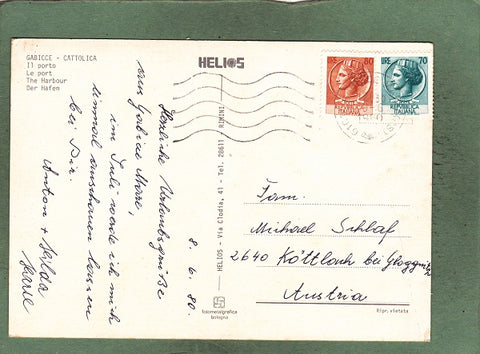 GABICCE - CATTOLICA
Il porto
Le port
The Harbour
Der Hafen
HELIOS
LIRE 80
REPUBBLICA
ITALIANA
LIRE 70
REPUBBLICA
ITALIANA
8. 6. 80.
Herzliche Urlaubsgrüße
aus Gabicce Mare,
im Juli werde ich mich
einmal anschauen lassen
bei Dir.
Anton + Hilda
HELIOS - Via Clodia, 41 - Tel. 28611 RIMINI
Fam.
Michael Schlaf
2640 Köttlach bei Gloggnitz
Austria
fotometalgrafica
bologna
Ripr. vietata